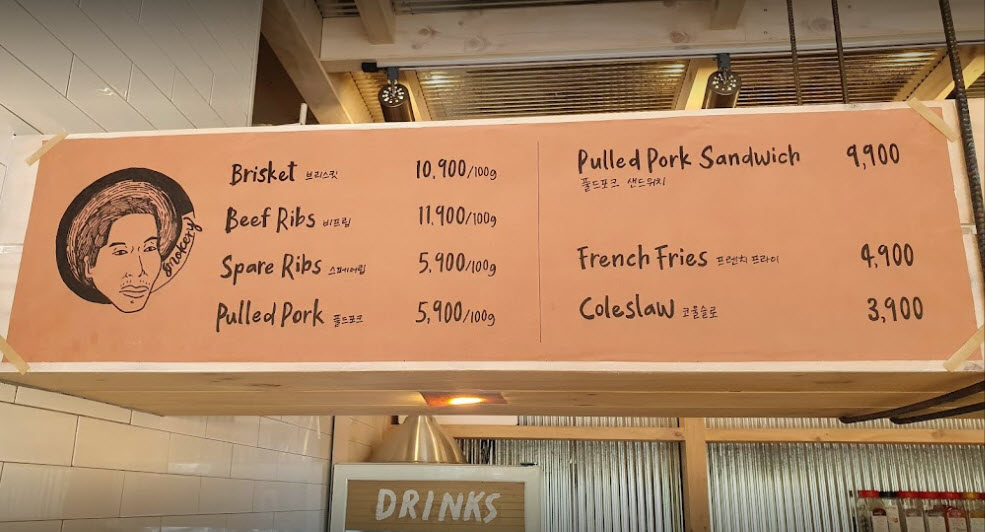 Smokery
Brisket 브리스킷 10,900/100g
Beef Ribs 비프립 11,900/100g
Spare Ribs 스페어립 5,900/100g
Pulled Pork 풀드포크 5,900/100g
Pulled Pork Sandwich 9,900
풀드포크 샌드위치
French Fries 프렌치 프라이 4,900
Coleslaw 코울슬로 3,900
DRINKS